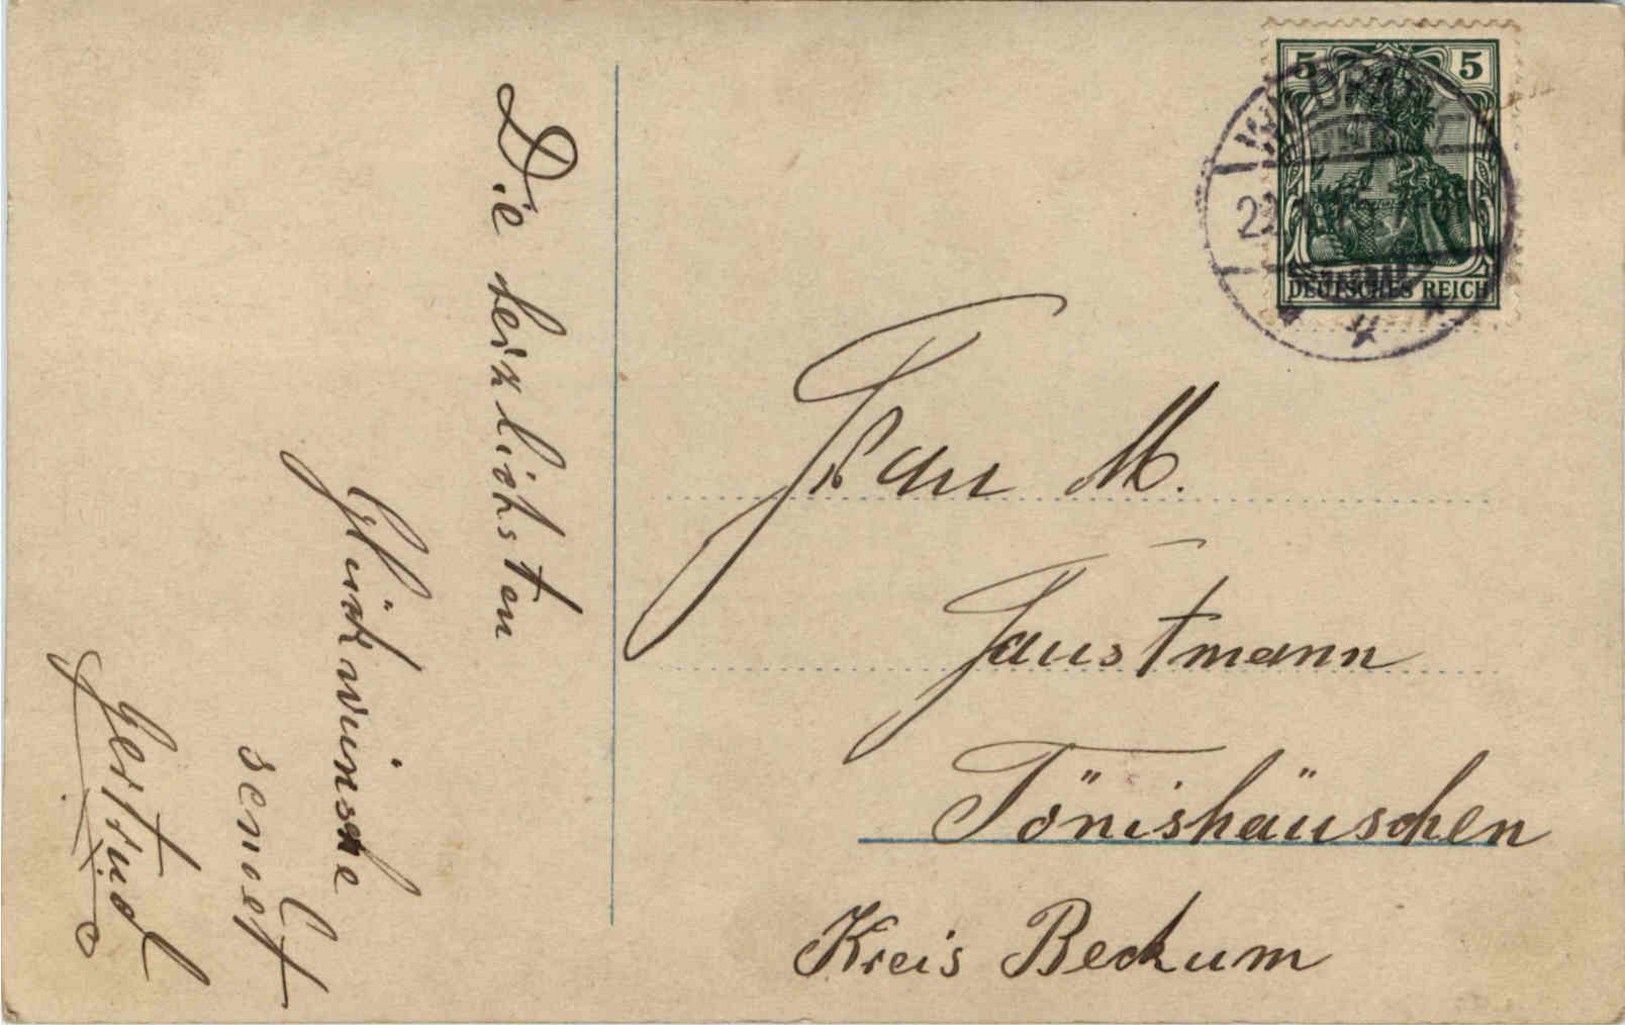 Die herzlichsten
Glückwünsche
sendet
Gertrud
5 5
DEUTSCHES REICH
Frau M.
Faustmann
Tönishäuschen
Kreis Beckum